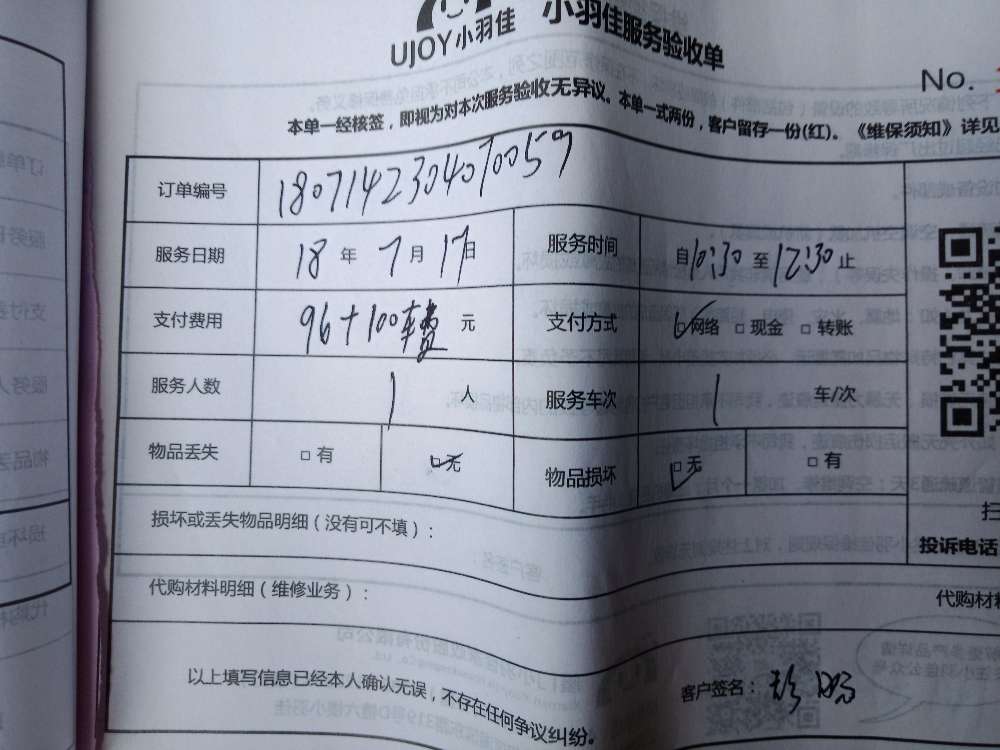 UJOY小羽佳 小羽佳服务验收单
No.
本单一经核签，即视为对本次服务验收无异议。本单一式两份，客户留存一份(红)。《维保须知》详见
订单编号 1807142304070059
服务日期 18 年 7 月 17 日 服务时间 自 10:30 至 12:30 止
支付费用 96+100车费 元 支付方式 ☑网络 □现金 □转账
服务人数 1 人 服务车次 1 车/次
物品丢失 □有 ☑无 物品损坏 ☑无 □有
扫
损坏或丢失物品明细（没有可不填）：
投诉电话
代购材料明细（维修业务）：
代购材料
以上填写信息已经本人确认无误，不存在任何争议纠纷。
客户签名：